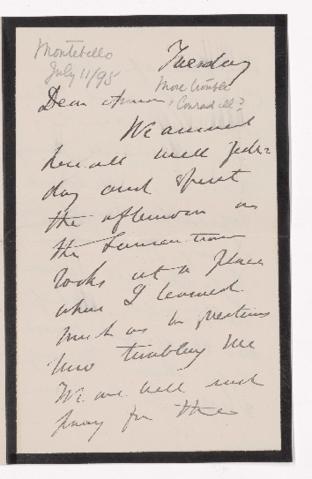 Montebello
July 11/95
Tuesday
More trouble
Conrad ill?
Dear Anna
We arrived
here all well
day and spent
the afternoon
the
rocks at a place
where I learned
much as to questions
now troubling me
We are well and
pray for the